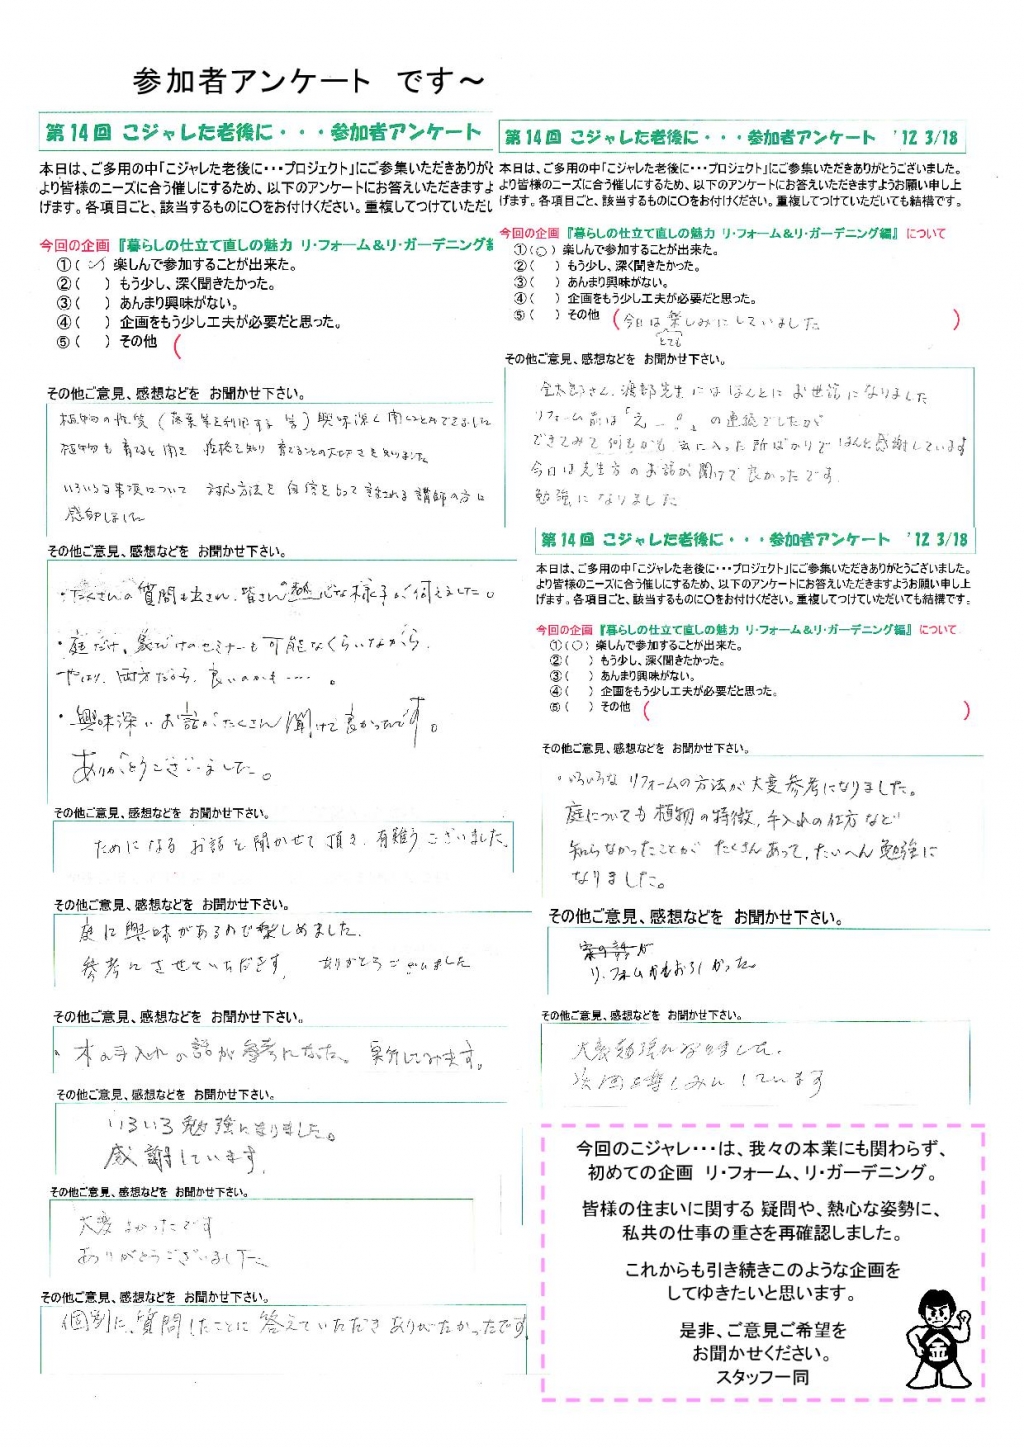 参加者アンケート です～
第14回 こジャレた老後に・・・参加者アンケート
本日は、ご多用の中「こジャレた老後に・・・プロジェクト」にご参集いただきありがと
より皆様のニーズに合う催しにするため、以下のアンケートにお答えいただきますよ
げます。各項目ごと、該当するものに〇をお付けください。重複してつけていただい
今回の企画『暮らしの仕立て直しの魅力 リ・フォーム＆リ・ガーデニング編
①( ○ ) 楽しんで参加することが出来た。
②( ) もう少し、深く聞きたかった。
③( ) あんまり興味がない。
④( ) 企画をもう少し工夫が必要だと思った。
⑤( ) その他 (
その他ご意見、感想などを お聞かせ下さい。
植物の性質(落葉等を利用する 等)興味深く聞くことができました
植物も育ると聞き 性格を知り 育てることの大切さを知りました
いろいろな事項について 対応方法を自信をもって話される講師の方に
感銘しました
その他ご意見、感想などを お聞かせ下さい。
・たくさんの質問も出され、皆さんの熱心な様子が伺えました。
・庭だけ、家だけのセミナーも可能なくらいながら、
やはり、両方だから、良いのかも……。
・興味深いお話がたくさん聞けて良かったです。
ありがとうございました。
その他ご意見、感想などを お聞かせ下さい。
ためになるお話を聞かせて頂き、有難うございました。
その他ご意見、感想などを お聞かせ下さい。
庭に興味があるので楽しめました。
参考にさせていただきます。 ありがとうございました
その他ご意見、感想などを お聞かせ下さい。
・木の手入れの話が参考になった。実行してみます。
その他ご意見、感想などを お聞かせ下さい。
いろいろ勉強になりました。
感謝しています。
その他ご意見、感想などを お聞かせ下さい。
大変よかったです
ありがとうございました
その他ご意見、感想などを お聞かせ下さい。
個別に、質問したことに答えていただきありがたかったです
第14回 こジャレた老後に・・・参加者アンケート '12 3/18
本日は、ご多用の中「こジャレた老後に・・・プロジェクト」にご参集いただきありがとうございました。
より皆様のニーズに合う催しにするため、以下のアンケートにお答えいただきますようお願い申し上
げます。各項目ごと、該当するものに〇をお付けください。重複してつけていただいても結構です。
今回の企画『暮らしの仕立て直しの魅力 リ・フォーム＆リ・ガーデニング編』について
①( ○ ) 楽しんで参加することが出来た。
②( ) もう少し、深く聞きたかった。
③( ) あんまり興味がない。
④( ) 企画をもう少し工夫が必要だと思った。
⑤( ) その他 (今日は楽しみにしていました )
とても
その他ご意見、感想などを お聞かせ下さい。
金太郎さん、渡部先生にはほんとにお世話になりました
リフォーム前は「えー!。」の連続でしたが
できてみて何もかも気に入った所ばかりでほんと感謝しています
今日は先生方のお話が聞けて良かったです。
勉強になりました
第14回 こジャレた老後に・・・参加者アンケート '12 3/18
本日は、ご多用の中「こジャレた老後に・・・プロジェクト」にご参集いただきありがとうございました。
より皆様のニーズに合う催しにするため、以下のアンケートにお答えいただきますようお願い申し上
げます。各項目ごと、該当するものに〇をお付けください。重複してつけていただいても結構です。
今回の企画『暮らしの仕立て直しの魅力 リ・フォーム＆リ・ガーデニング編』について
①( ○ ) 楽しんで参加することが出来た。
②( ) もう少し、深く聞きたかった。
③( ) あんまり興味がない。
④( ) 企画をもう少し工夫が必要だと思った。
⑤( ) その他 ( )
その他ご意見、感想などを お聞かせ下さい。
・いろいろなリフォームの方法が大変参考になりました。
庭についても植物の特徴、手入れの仕方など
知らなかったことがたくさんあって、たいへん勉強に
なりました。
その他ご意見、感想などを お聞かせ下さい。
家の話が
リ・フォームがおもしろかった。
その他ご意見、感想などを お聞かせ下さい。
大変勉強になりました。
次回を楽しみにしています
今回のこジャレ・・・は、我々の本業にも関わらず、
初めての企画 リ・フォーム、リ・ガーデニング。
皆様の住まいに関する 疑問や、熱心な姿勢に、
私共の仕事の重さを再確認しました。
これからも引き続きこのような企画を
してゆきたいと思います。
是非、ご意見ご希望を
お聞かせください。
スタッフ一同
金